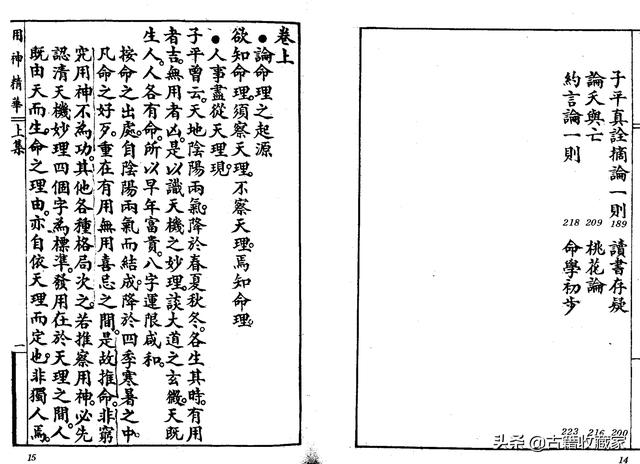 子平真詮摘論一則 189 讀書存疑 200
論夭與亡 209 桃花論 216
約言論一則 218 命學初步 223
14
卷上
●論命理之起源
欲知命理。須察天理。不察天理。焉知命理。
●人事盡從天理現
子平曾云。天地陰陽兩氣。降於春夏秋冬。各生其時。有用
者吉。無用者凶。是以識天機之妙理。談大道之玄微。天既
生人。人各有命。所以早年富貴。八字運限咸和。
按命之出處。自陰陽兩氣而結成。降於四季寒暑之中。
凡命之好歹。重在有用無用喜忌之間。是故推命。非窮
究用神不為功。其他各種格局次之。若推察用神。必先
認清天機妙理四個字為標準。發用在於天理之間。人
既由天而生。命之理由。亦自依天理而定也。非獨人焉。
用神精華 上集 一
15
头条 @古籍收藏家